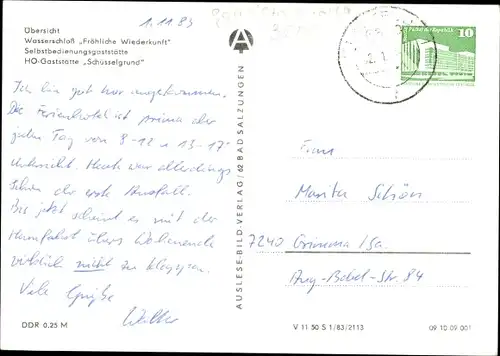 1.11.83
Übersicht
Wasserschloß „Fröhliche Wiederkunft"
Selbstbedienungsgaststätte
HO-Gaststätte „Schüsselgrund"
Ich bin gut hier angekommen.
Das Ferienhotel ist prima aber
jeden Tag von 8-12 u 13-17⁰⁰
Unterricht. Heute war allerdings
schon der erste Ausfall.
Bis jetzt scheint es mit der
Heimfahrt übers Wochenende
wirklich nicht zu klappen.
Viele Grüße
Walter
DDR 0,25 M
A
AUSLESE-BILD-VERLAG / 62 BAD SALZUNGEN
10
Frau
Marita Schön
7240 Grimma / Sa.
Aug.-Bebel-Str. 84
V 11 50 S 1/83/2113
09 10 09 001